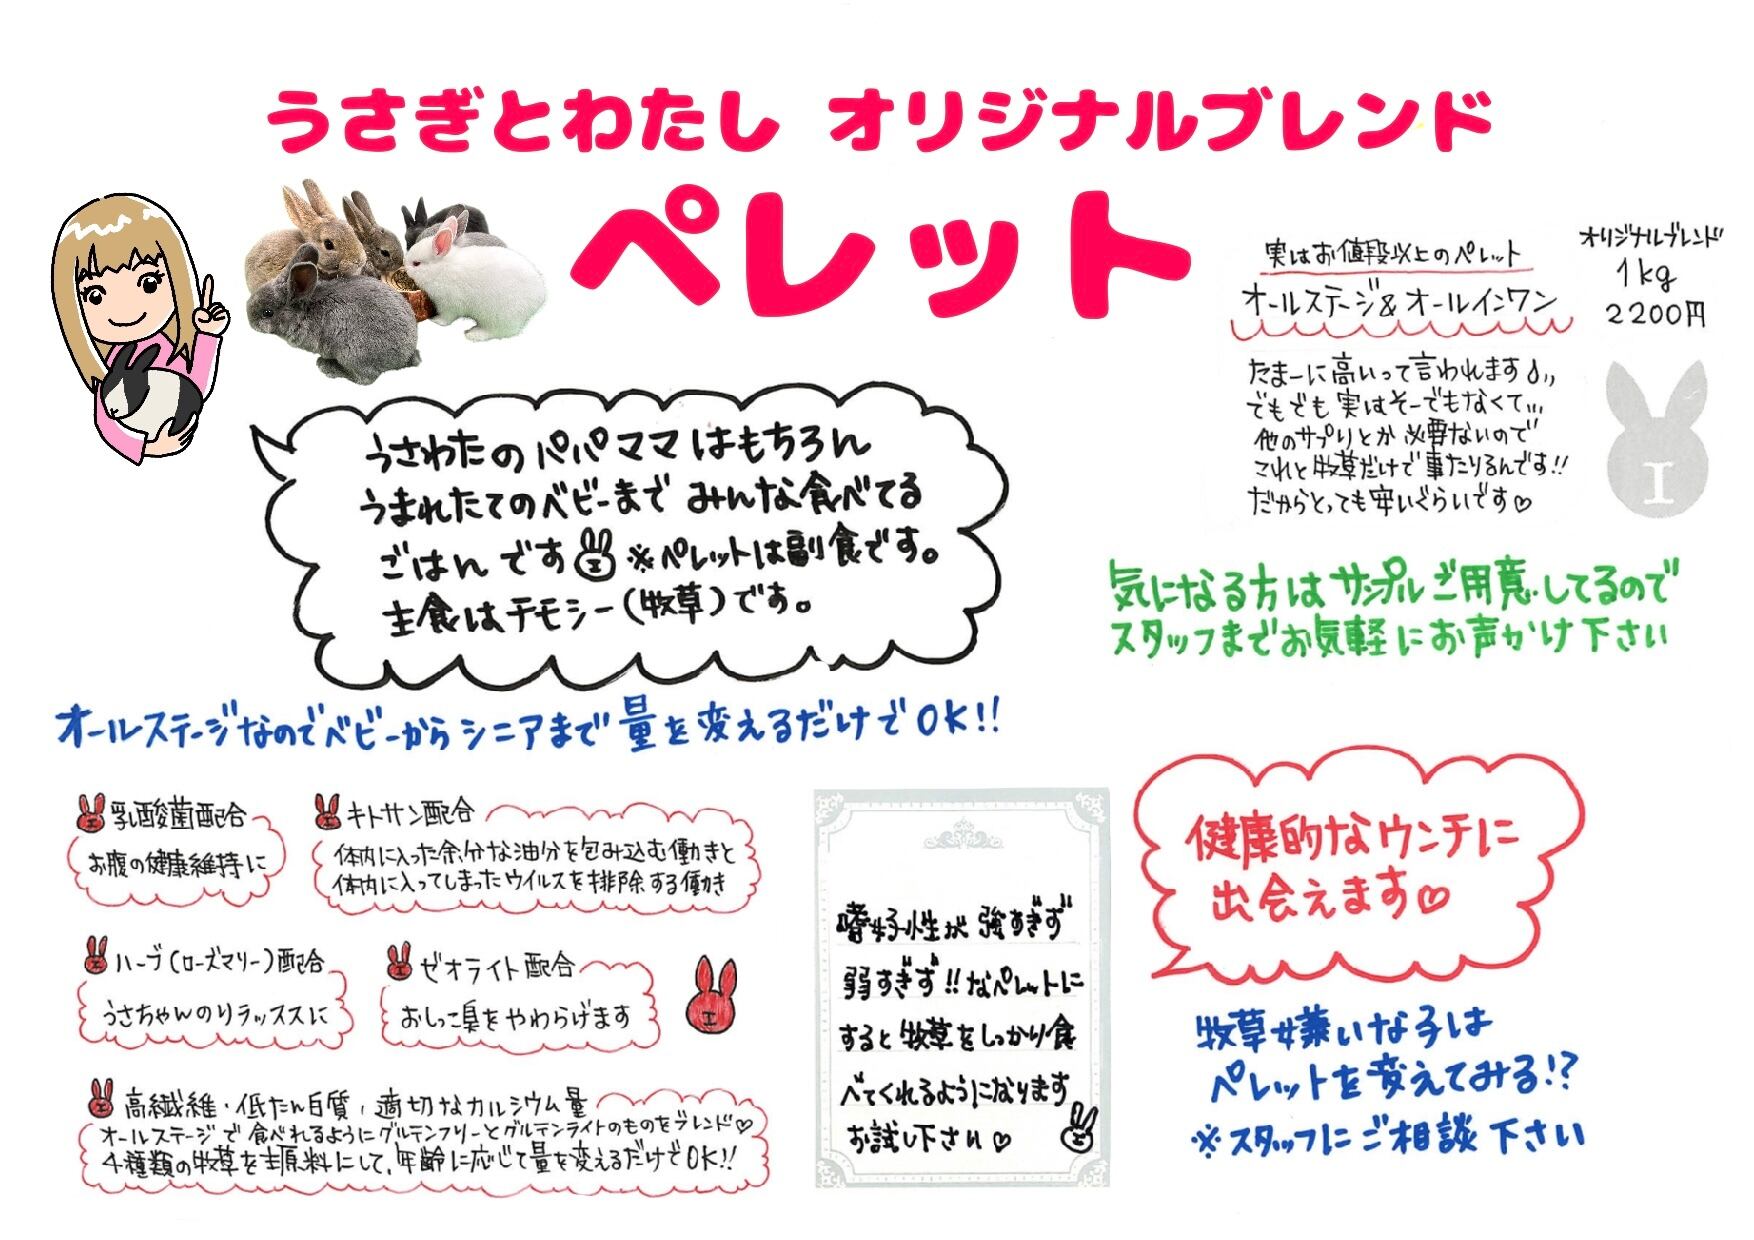 うさぎとわたし オリジナルブレンド
ペレット
オリジナルブレンド
1kg
2200円
実はお値段以上のペレット
オールステージ&オールインワン
たまーに高いって言われます
でもでも実はそーでもなくて,,,
他のサプリとか必要ないので
これと牧草だけで事たりるんです!!
だからとっても安いぐらいです♡
うさわたのパパママはもちろん
うまれたてのベビーまでみんな食べてる
ごはんです ※ペレットは副食です。
主食はチモシー(牧草)です。
気になる方はサンプルご用意してるので
スタッフまでお気軽にお声かけ下さい
オールステージなのでベビーからシニアまで量を変えるだけでOK!!
乳酸菌配合
お腹の健康維持に
キトサン配合
体内に入った余分な油分を包み込む働きと
体内に入ってしまったウイルスを排除する働き
ハーブ(ローズマリー)配合
うさちゃんのリラックスに
ゼオライト配合
おしっこ臭をやわらげます
高繊維・低たん白質・適切なカルシウム量
オールステージで食べれるようにグルテンフリーとグルテンライトのものをブレンド♡
4種類の牧草を主原料にして、年齢に応じて量を変えるだけでOK!!
嗜好性が強すぎず
弱すぎず!!なペレットに
すると牧草をしっかり食
べてくれるようになります
お試し下さい♡
健康的なウンチに
出会えます♡
牧草嫌いな子は
ペレットを変えてみる!?
※スタッフにご相談下さい